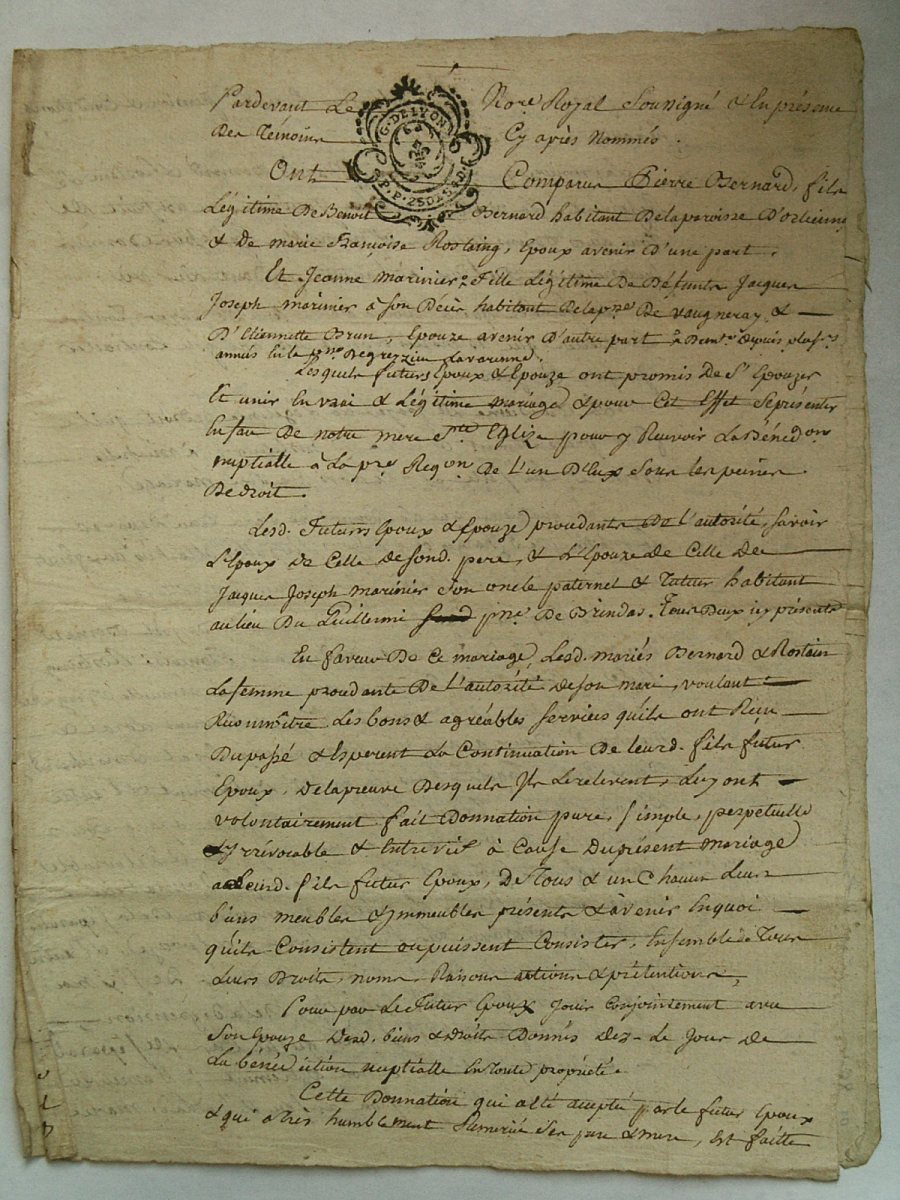 Pardevant Le Nore. Royal Soussigné & En présence
Des Témoins Cy après Nommés.
G. DE LYON
P. P. 2 S D
Ont Comparus Pierre Bernard, fils
Légitime De Benoit Bernard habitant Delaparoisse D'orliennas
& De marie Françoise Rostaing, Epoux avenir D'une part,
Et Jeanne marinier, Fille Légitime De Défunts Jacques
Joseph marinier à son Décès habitant Delapsse De vaugneray, &
D'Etiennette Brun, Epouze avenir D'autre part Demte. Depuis plusrs
années En la psse De grezzieu Lavarenne.
Lesquels futurs Epoux & Epouze ont promis De S'Epouzer
Et unir En vrai & Légitime mariage & pour Cet Effet Seprésenter
Enface De notre mere Ste Eglize pour y Recevoir La Bénédon
nuptialle à La pre. Reqon. De L'un D'Eux Sous les peines
De droit.
Lesd. Futurs Epoux & Epouze procédants De L'autorité, Savoir
L'Epoux De Celle desond. pere, & L'Epouze de Celle De
Jacques Joseph marinier Son oncle paternel & Tuteur habitant
au lieu Du Guillermi psse. De Brindas, Tous Deux icy présents
En faveur De Ce mariage, Lesd. mariés Bernard & Rostain
La femme procédante De L'autorité deson mari, voulant
Reconnoitre Les bons & agréables services qu'ils ont Reçu
Dupassé & Esperent La Continuation De leurd. fils futur
Epoux, Delapreuve Desquels Ils Lerelevent, Luy ont
volontairement fait Donnation pure, Simple, perpetuelle
& Irrévocable & Entrevif à Cause Duprésent mariage
a Leurd. fils futur Epoux, De Tous & un Chacun Leurs
biens meubles & Immeubles présents & àvenir Enquoi
qu'ils Consistent ou puissent Consister, Ensemble de Tous
Leurs Droits, noms, Raisons actions & prétentions,
Pour par Le Futur Epoux Jouir Conjointement avec
Son Epouze Desd. biens & droits Donnés dez-Le Jour De
La bénédiction nuptialle En toute propriété.
Cette Donnation qui a Eté accepté parle futur Epoux
& qui a très humblement Remercié Ses pere & mere, Est faitte